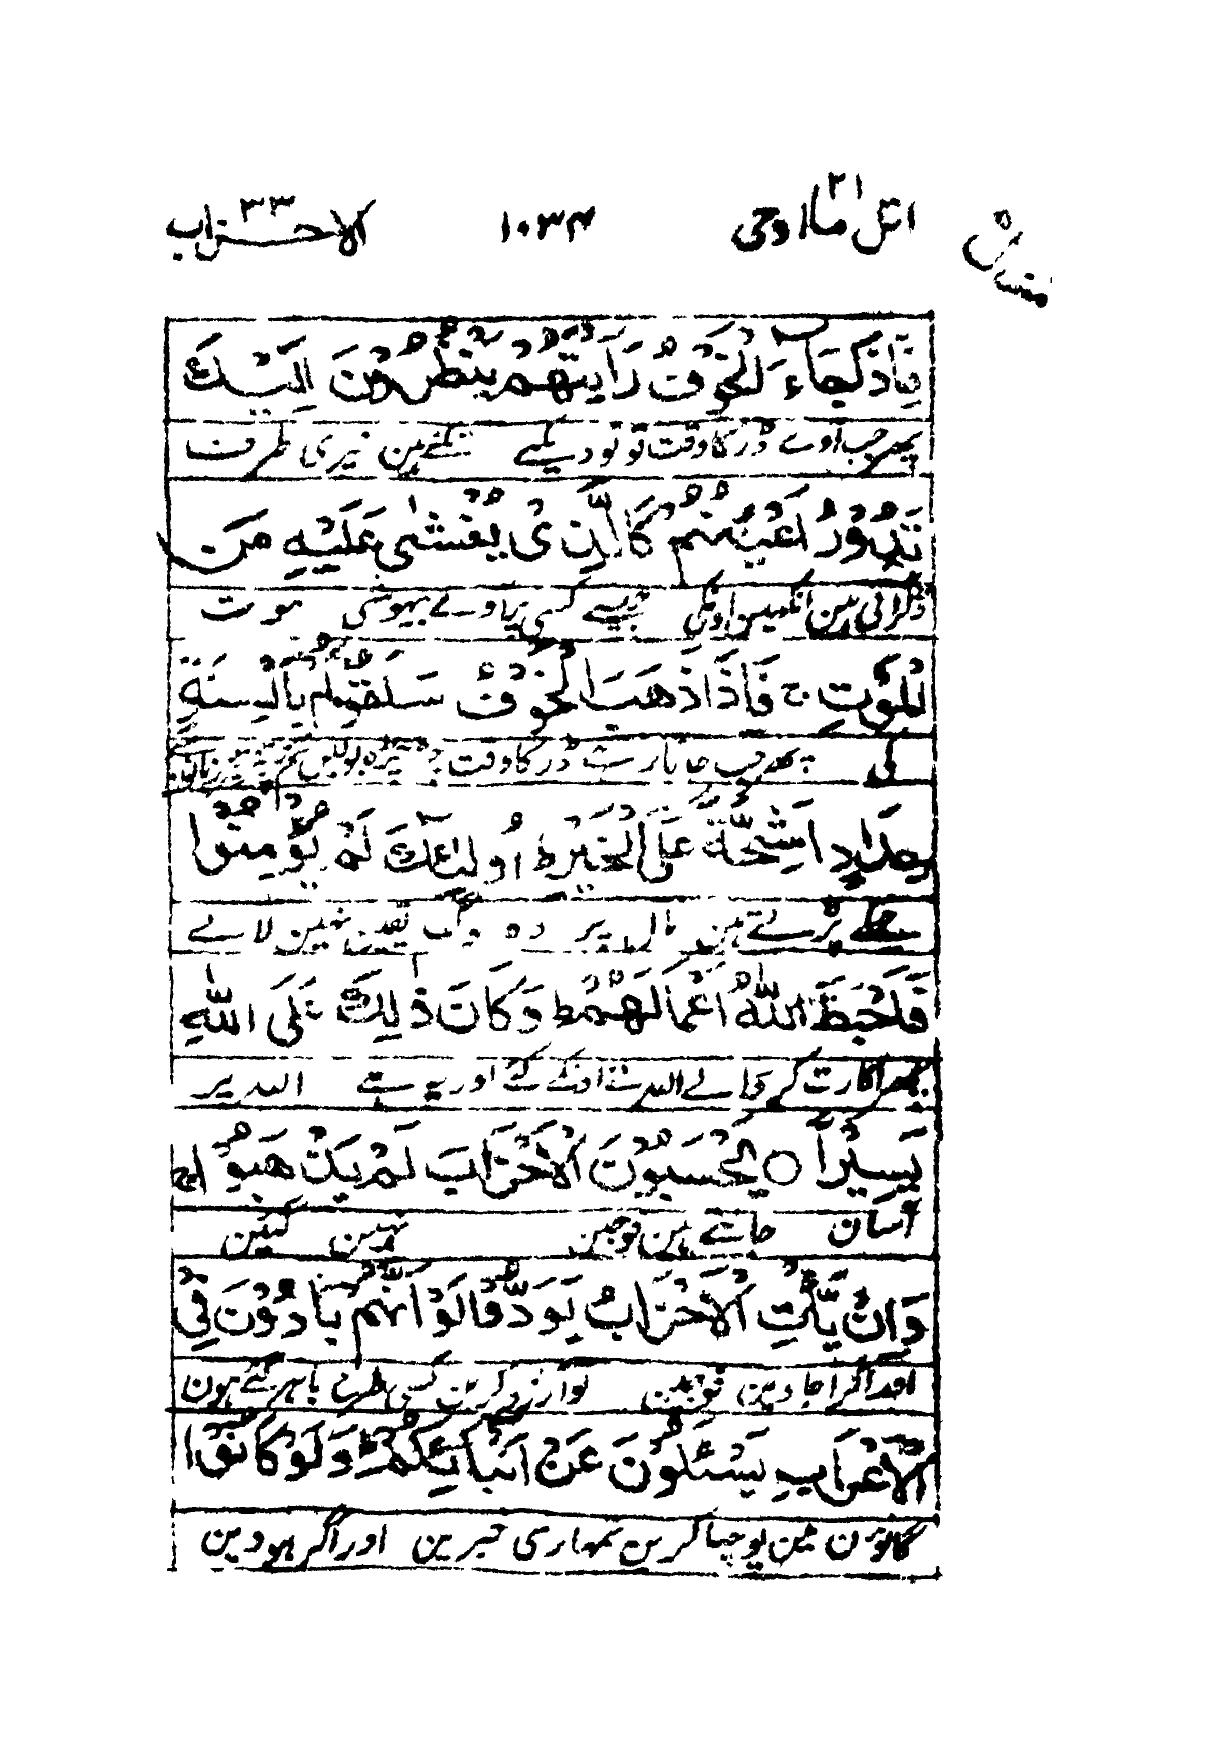 اتل ما اوحی ۲۱ ۱۰۳۴ الاحزاب ۳۳
منزل ۵
فَاِذَا جَاءَ الْخَوْفُ رَاَيْتَهُمْ يَنْظُرُوْنَ اِلَيْكَ
پھر جب آوے ڈر کا وقت تو تو دیکھے تکتے ہین تیری طرف
تَدُوْرُ اَعْيُنُهُمْ كَالَّذِىْ يُغْشٰى عَلَيْهِ مِنَ
ڈگراتی ہین آنکھین اونکی جیسے کسی پر آوے بیہوشی موت
الْمَوْتِ ج فَاِذَا ذَهَبَ الْخَوْفُ سَلَقُوْكُمْ بِاَلْسِنَةٍ
کی پھر جب جاتا رہے ڈر کا وقت
حِدَادٍ اَشِحَّةً عَلَى الْخَيْرِ ط اُولٰٓئِكَ لَمْ يُؤْمِنُوْا
ڈھکے پڑتے ہین مال پر وہ لوگ یقین نہین لائے
فَاَحْبَطَ اللّٰهُ اَعْمَالَهُمْ ط وَكَانَ ذٰلِكَ عَلَى اللّٰهِ
پھر اکارت کر ڈالے اللہ نے اونکے کئے اور یہ ہے اللہ پر
يَسِيْرًا ○ يَحْسَبُوْنَ الْاَحْزَابَ لَمْ يَذْهَبُوْا ج
آسان جانتے ہین فوجین نہین گئین
وَاِنْ يَّاْتِ الْاَحْزَابُ يَوَدُّوْا لَوْ اَنَّهُمْ بَادُوْنَ فِى
اور اگر آجاوین فوجین تو آرزو کرین کسی طرح باہر گئے ہون
الْاَعْرَابِ يَسْئَلُوْنَ عَنْ اَنْبَآئِكُمْ ط وَلَوْ كَانُوْا
گانؤن مین پوچھا کرین تمہاری خبرین اور اگر ہووین